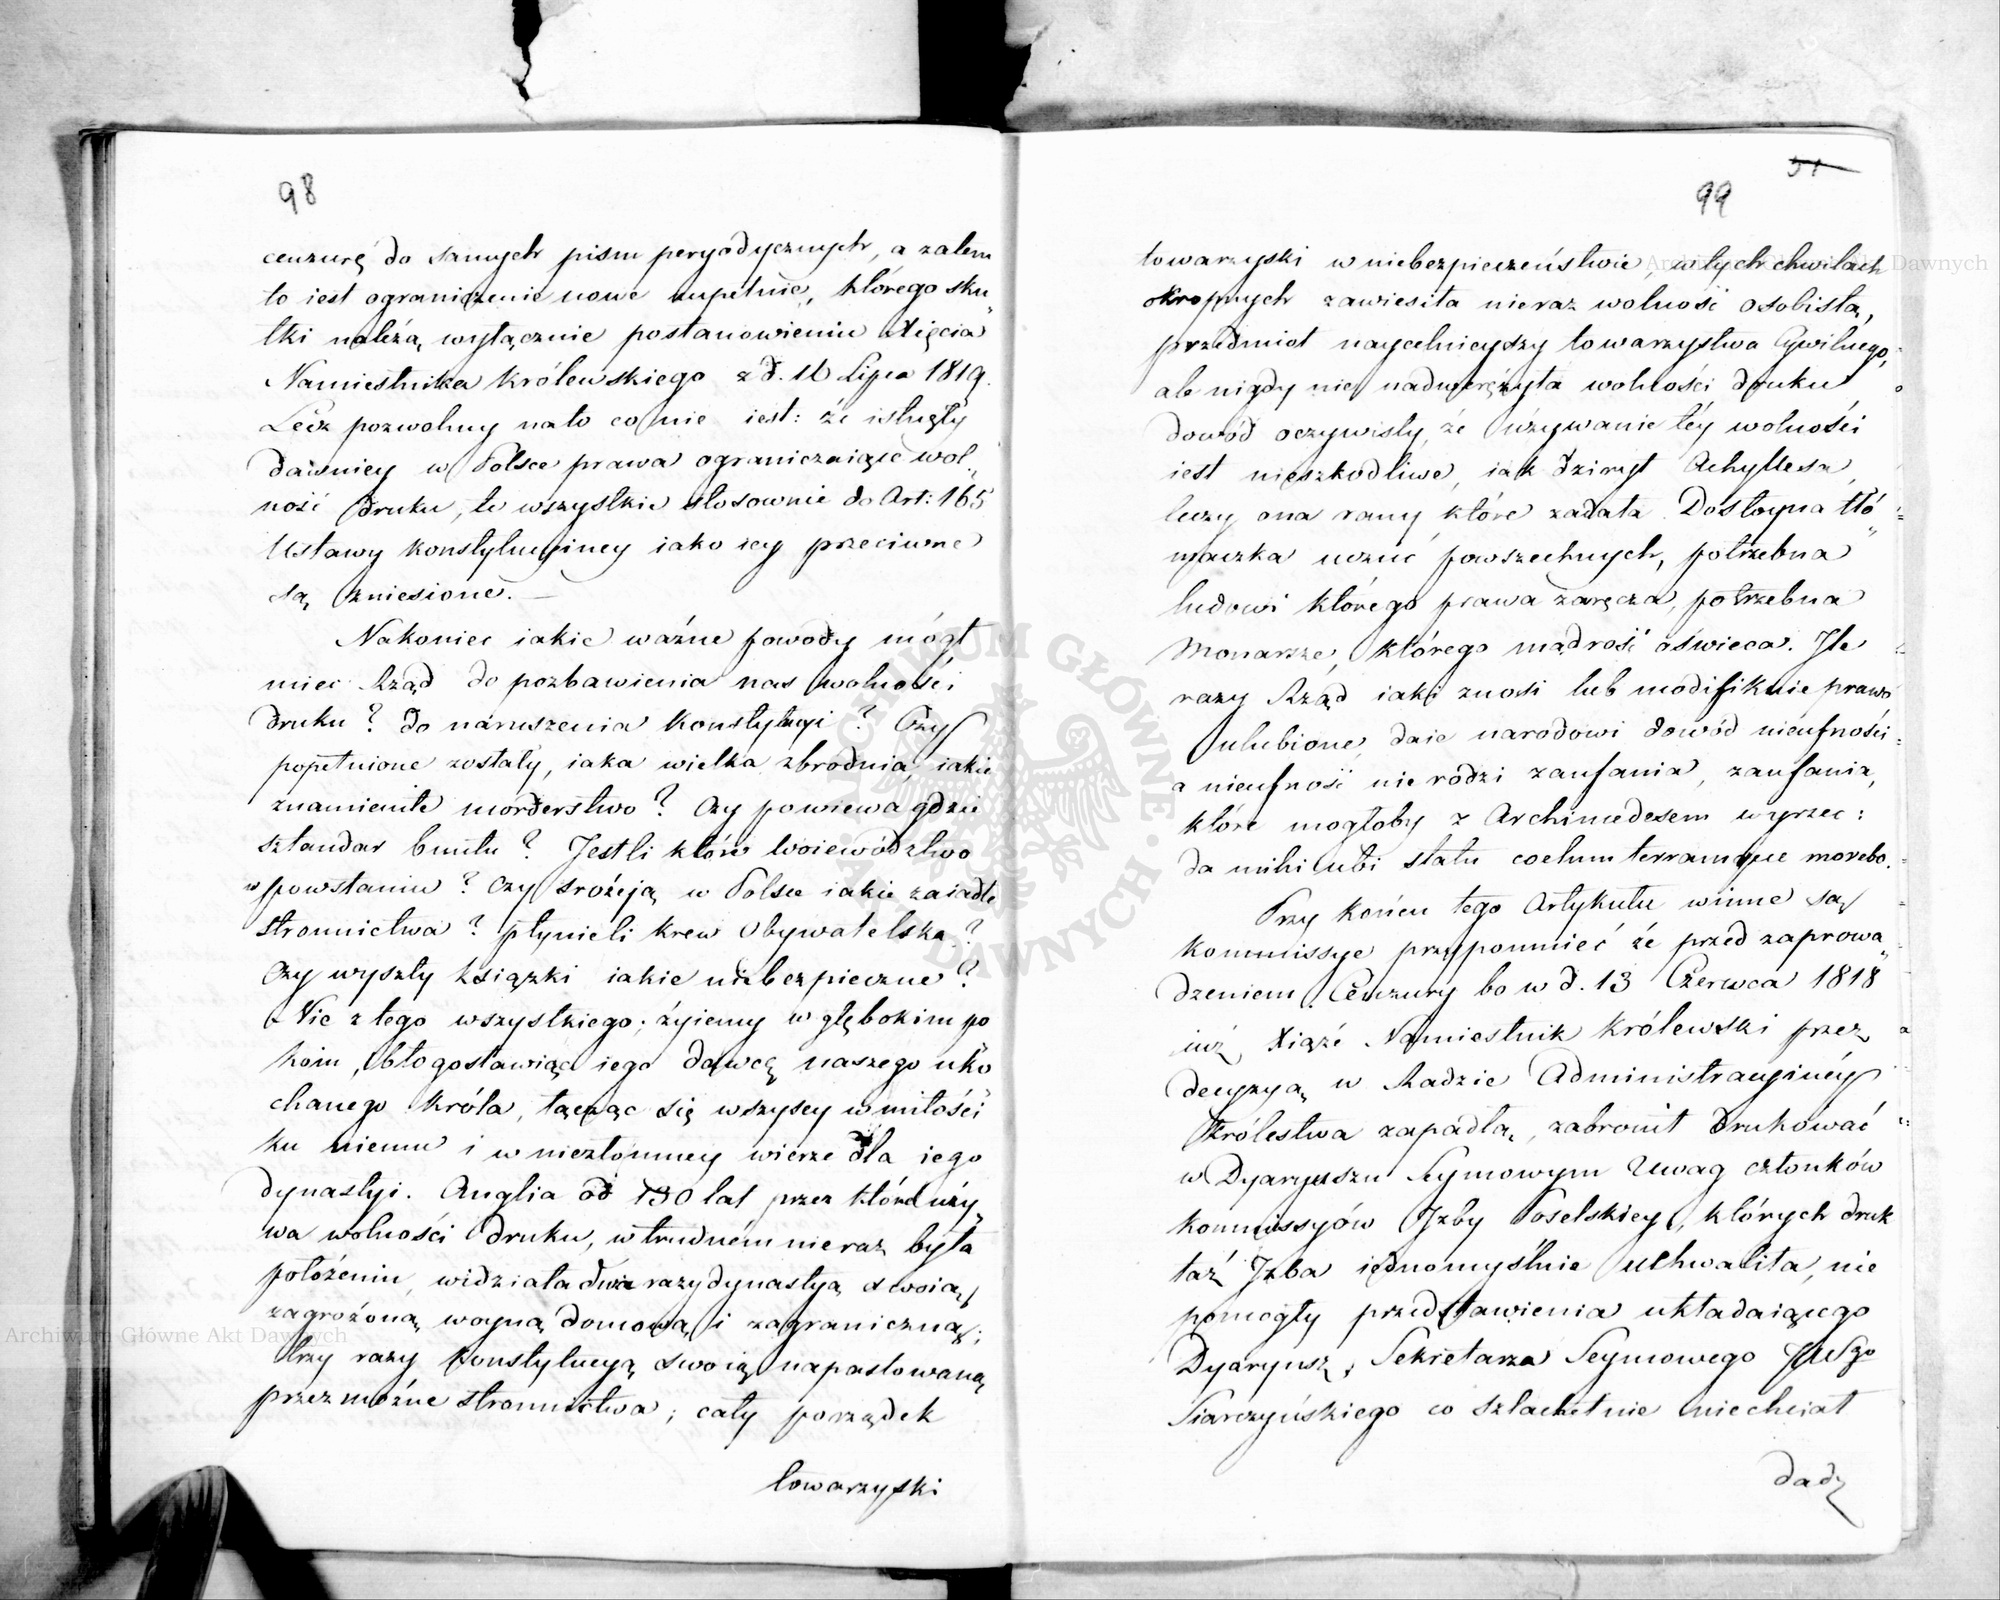 98
cenzurę do samych pism peryodycznych, a zatem
to iest ograniczenie nowe zupełnie, którego sku„
tki należą wyłącznie postanowieniu Xięcia
Namiestnika Królewskiego z d. 16 Lipca 1819.
Lecz pozwolmy na to co nie iest: że istnęły
dawniey w Polsce prawa ograniczaiące wol„
ność druku, te wszystkie stosownie do Art: 165
Ustawy Konstytucyiney iako iey przeciwne
są zniesione. —
Nakoniec iakie ważne powody mógł
miec Rząd do pozbawienia nas wolności
druku? do naruszenia Konstytucyi? Czy
popełnione zostały, iaka wielka zbrodnia, iakie
znamienite morderstwo? Czy powiewa gdzie
sztandar buntu? Jestli które Woiewództwo
w powstaniu? Czy srożeją w Polsce iakie zaiadłe
stronnictwa? płynieli krew Obywatelska?
Czy wyszły książki iakie niebezpieczne?
Nic z tego wszystkiego; żyiemy w głębokim po„
koiu, błogosławiąc iego dawcę naszego uko„
chanego Króla, łącząc się wszyscy w miłości
ku niemu i w niezłomney wierze dla iego
dynastyi. Anglia od 130 lat przez które uży„
wa wolności druku, w trudnem nieraz była
położeniu, widziała dwa razy dynastyą swoią
zagrożoną woyną domową i zagraniczną;
trzy razy Konstytucyą swoią napastowaną
przez możne stronnictwa; cały porządek
towarzyski
51
99
towarzyski w niebezpieczeństwie, w tych chwilach
okropnych zawiesiła nieraz wolność osobistą,
przedmiot naycelnieyszy towarzystwa Cywilnego,
ale nigdy nie nadwerężyła wolności druku
dowód oczywisty, że używanie téy wolności
iest nieszkodliwe, iak dziryt Achyllesa,
leczy ona rany które zadała. Dostoyna tłó„
maczka uczuć powszechnych, potrzebna
ludowi którego prawa zaręcza, potrzebna
Monarsze, którego mądrość oświeca. Ile
razy Rząd iaki znosi lub modifikuie prawo
ulubione, daie narodowi dowód nieufności
a nieufność nie rodzi zaufania, zaufania,
które mogłoby z Archimedesem wyrzec:
da mihi ubi statu coelum terramque morebo.
Przy końcu tego Artykułu winne są
Kommissye przypomnieć że przed zaprowa„
dzeniem Cenzury bo w d. 13 Czerwca 1818
iuż Xiąże Namiestnik Królewski przez
decyzyą w Radzie Administracyinéy
Królestwa zapadłą, zabronił drukować
w Dyaryuszu Seymowym Uwag członków
Kommissyów Izby Poselskiey, których druk
taż Izba iednomyślnie uchwaliła, nie
pomogły przedstawienia układaiącego
Dyaryusz, Sekretarza Seymowego JWgo
Piarczyńskiego co szlachetnie niechciał
dadź